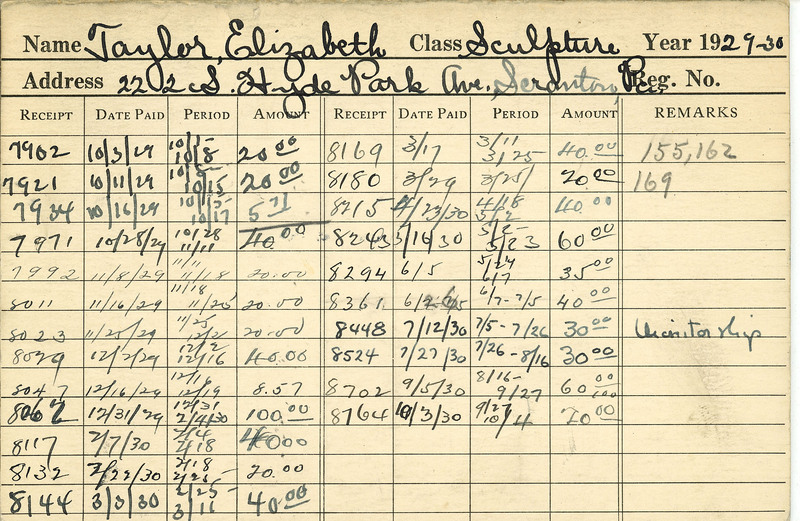 Name Taylor, Elizabeth Class Sculpture Year 1929-30
Address 222 S. Hyde Park Ave., Scranton, Pa. Reg. No.
RECEIPT DATE PAID PERIOD AMOUNT RECEIPT DATE PAID PERIOD AMOUNT REMARKS
7902 10/3/29 10/1- 10/8 20.00 8169 3/17 3/11 3/25 40.00 155,162
7921 10/11/29 10/8- 10/15 20.00 8180 3/29 3/25/ 20.00 169
7934 10/16/29 10/15- 10/17 5.71 8215 4/23/30 4/18 5/2- 40.00
7971 10/28/29 10/28 11/11 40.00 8243 5/16/30 5/2- 5/23 60.00
7992 11/8/29 11/11 11/18 20.00 8294 6/5 5/24 6/7 35.00
8011 11/16/29 11/18 11/25 20.00 8361 6/7-7/5 40.00
8023 11/25/29 11/25 12/2 20.00 8448 7/12/30 7/5-7/26 30.00 Monitorship
8029 12/2/29 12/2 12/16 40.00 8524 7/27/30 7/26-8/16 30.00
8047 12/16/29 12/16 12/19 8.57 8702 9/5/30 8/16- 9/27 60.00
8062 12/31/29 12/31 2/4/30 100.00 8764 10/3/30 9/27 10/4 70.00
8117 2/7/30 2/4 2/18 40.00
8132 2/22/30 2/18 2/25- 20.00
8144 3/3/30 2/25- 3/11 40.00